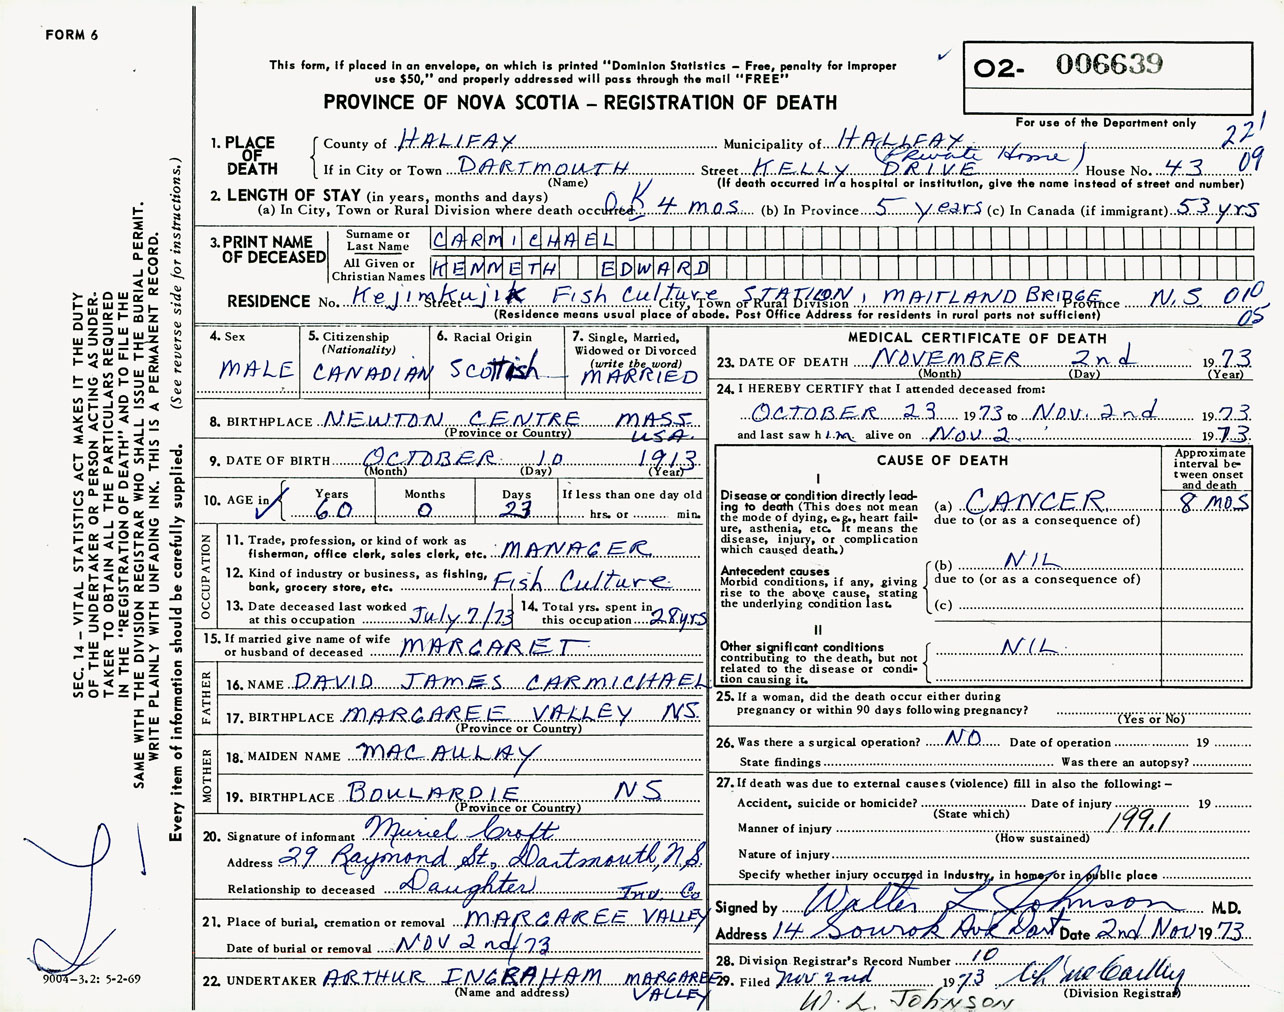 FORM 6
This form, if placed in an envelope, on which is printed "Dominion Statistics – Free, penalty for improper
use $50," and properly addressed will pass through the mail "FREE"
PROVINCE OF NOVA SCOTIA – REGISTRATION OF DEATH
O2- 006639
For use of the Department only
221
09
1. PLACE OF DEATH
County of HALIFAX Municipality of HALIFAX
(Private Home)
If in City or Town DARTMOUTH Street KELLY DRIVE House No. 43
(Name) (If death occurred in a hospital or institution, give the name instead of street and number)
2. LENGTH OF STAY (in years, months and days)
(a) In City, Town or Rural Division where death occurred OK 4 mos (b) In Province 5 years (c) In Canada (if immigrant) 53 yrs
3. PRINT NAME OF DECEASED
Surname or Last Name CARMICHAEL
All Given or Christian Names KENNETH EDWARD
RESIDENCE No. Street City, Town or Rural Division Province
Kejimkujik Fish Culture STATION, MAITLAND BRIDGE N.S. 010
05
(Residence means usual place of abode. Post Office Address for residents in rural parts not sufficient)
4. Sex MALE
5. Citizenship (Nationality) CANADIAN
6. Racial Origin Scottish
7. Single, Married, Widowed or Divorced (write the word) MARRIED
8. BIRTHPLACE NEWTON CENTRE MASS. USA.
(Province or Country)
9. DATE OF BIRTH OCTOBER 10 1913
(Month) (Day) (Year)
10. AGE in ✓ Years 60 Months 0 Days 23 If less than one day old hrs. or min.
OCCUPATION
11. Trade, profession, or kind of work as
fisherman, office clerk, sales clerk, etc. MANAGER
12. Kind of industry or business, as fishing,
bank, grocery store, etc. Fish Culture
13. Date deceased last worked
at this occupation July 7/73
14. Total yrs. spent in
this occupation 28 yrs
15. If married give name of wife
or husband of deceased MARGARET
FATHER
16. NAME DAVID JAMES CARMICHAEL
17. BIRTHPLACE MARGAREE VALLEY NS.
(Province or Country)
MOTHER
18. MAIDEN NAME MACAULAY
19. BIRTHPLACE BOULARDIE NS
(Province or Country)
20. Signature of informant Muriel Croft
Address 29 Raymond St., Dartmouth, N.S.
Relationship to deceased Daughter Inv. Co
21. Place of burial, cremation or removal MARGAREE VALLEY
Date of burial or removal NOV 2nd/73
22. UNDERTAKER ARTHUR INGRAHAM MARGAREE VALLEY
(Name and address)
MEDICAL CERTIFICATE OF DEATH
23. DATE OF DEATH NOVEMBER 2nd 1973
(Month) (Day) (Year)
24. I HEREBY CERTIFY that I attended deceased from:
OCTOBER 23 1973 to NOV. 2nd 1973
and last saw him alive on NOV 2 1973
CAUSE OF DEATH
Approximate interval between onset and death
I
Disease or condition directly leading to death (This does not mean
the mode of dying, e.g., heart failure, asthenia, etc. It means the
disease, injury, or complication
which caused death.)
(a) CANCER 8 MOS
due to (or as a consequence of)
Antecedent causes
Morbid conditions, if any, giving
rise to the above cause, stating
the underlying condition last.
(b) NIL
due to (or as a consequence of)
(c)
II
Other significant conditions
contributing to the death, but not
related to the disease or condition causing it.
NIL.
25. If a woman, did the death occur either during
pregnancy or within 90 days following pregnancy?
(Yes or No)
26. Was there a surgical operation? NO Date of operation 19
State findings Was there an autopsy?
27. If death was due to external causes (violence) fill in also the following: –
Accident, suicide or homicide? Date of injury 19
(State which)
Manner of injury 199.1
(How sustained)
Nature of injury
Specify whether injury occurred in Industry, in home, or in public place
Signed by Walter L Johnson M.D.
Address 14 Date 2nd Nov 1973
28. Division Registrar's Record Number 10
29. Filed Nov 2nd 1973
(Division Registrar)
W. L. JOHNSON
SEC. 14 – VITAL STATISTICS ACT MAKES IT THE DUTY
OF THE UNDERTAKER OR PERSON ACTING AS UNDER-
TAKER TO OBTAIN ALL THE PARTICULARS REQUIRED
IN THE "REGISTRATION OF DEATH" AND TO FILE THE
SAME WITH THE DIVISION REGISTRAR WHO SHALL ISSUE THE BURIAL PERMIT.
WRITE PLAINLY WITH UNFADING INK. THIS IS A PERMANENT RECORD.
Every item of information should be carefully supplied. (See reverse side for instructions.)
9004–3.2: 5-2-69